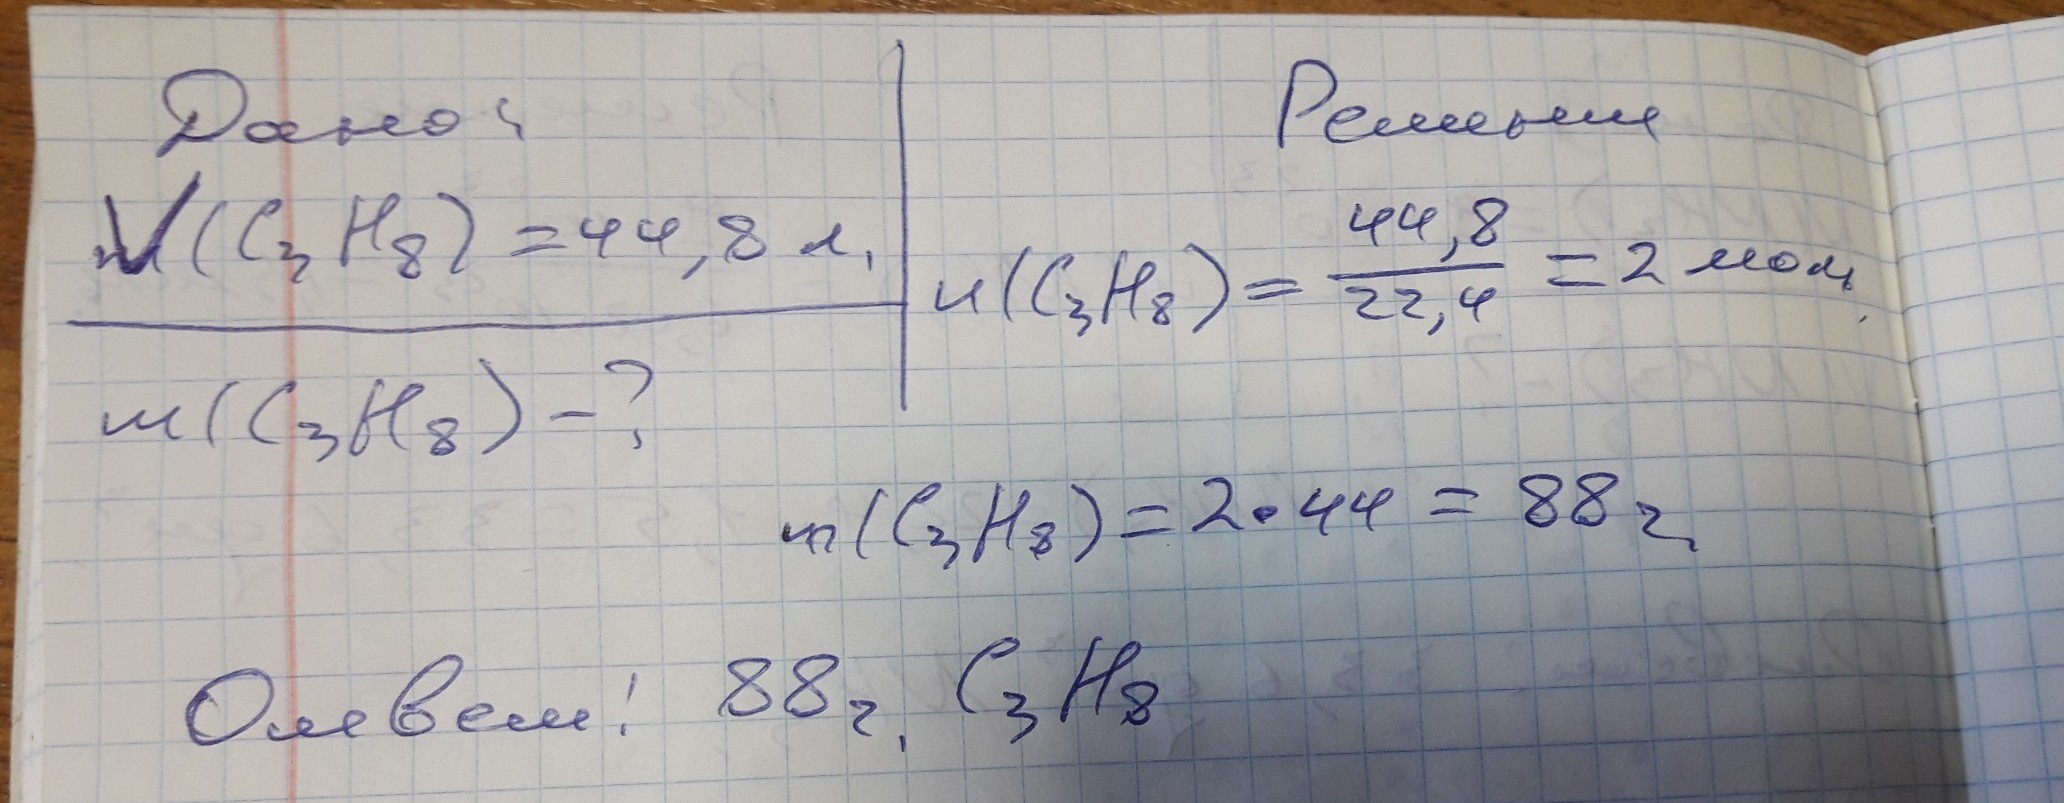 Дано:
V(C₃H₈) = 44,8 л.
m(C₃H₈) - ?
Решение
n(C₃H₈) = 44,8/22,4 = 2 моль.
m(C₃H₈) = 2·44 = 88 г.
Ответ: 88 г. C₃H₈